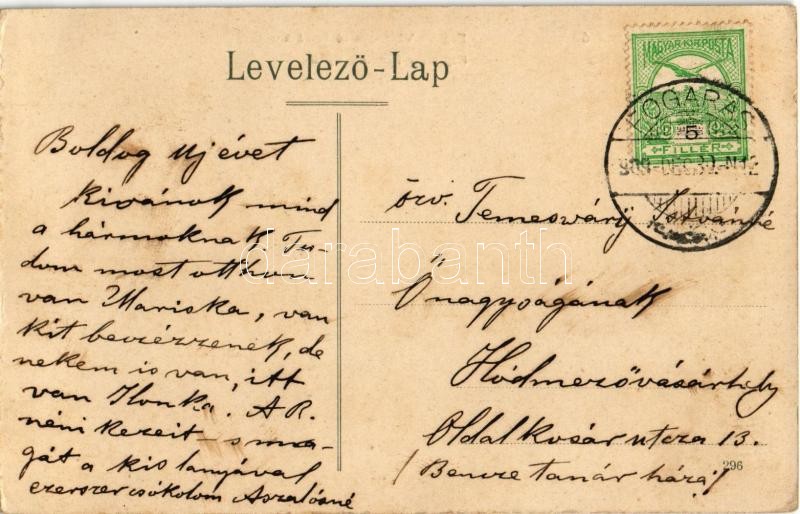 Levelező-Lap
MAGYAR KIR. POSTA
FILLÉR
FOGARAS
5
909 DEC 30 N12
Boldog ujévet
kivánok mind
a hármoknak. Tu-
dom most otthon
van Mariska, van
kit becézzenek, de
nekem is van, itt
van Ilonka. A R.
néni kezeit s ma-
gát a kis lanyával
ezerszer csókolom Aszalósné
özv. Temesváry Istvánné
Ő nagyságának
Hódmezővásárhely
Oldalkosár utcza 13.
(Bencze tanár háza)
296
darabanth